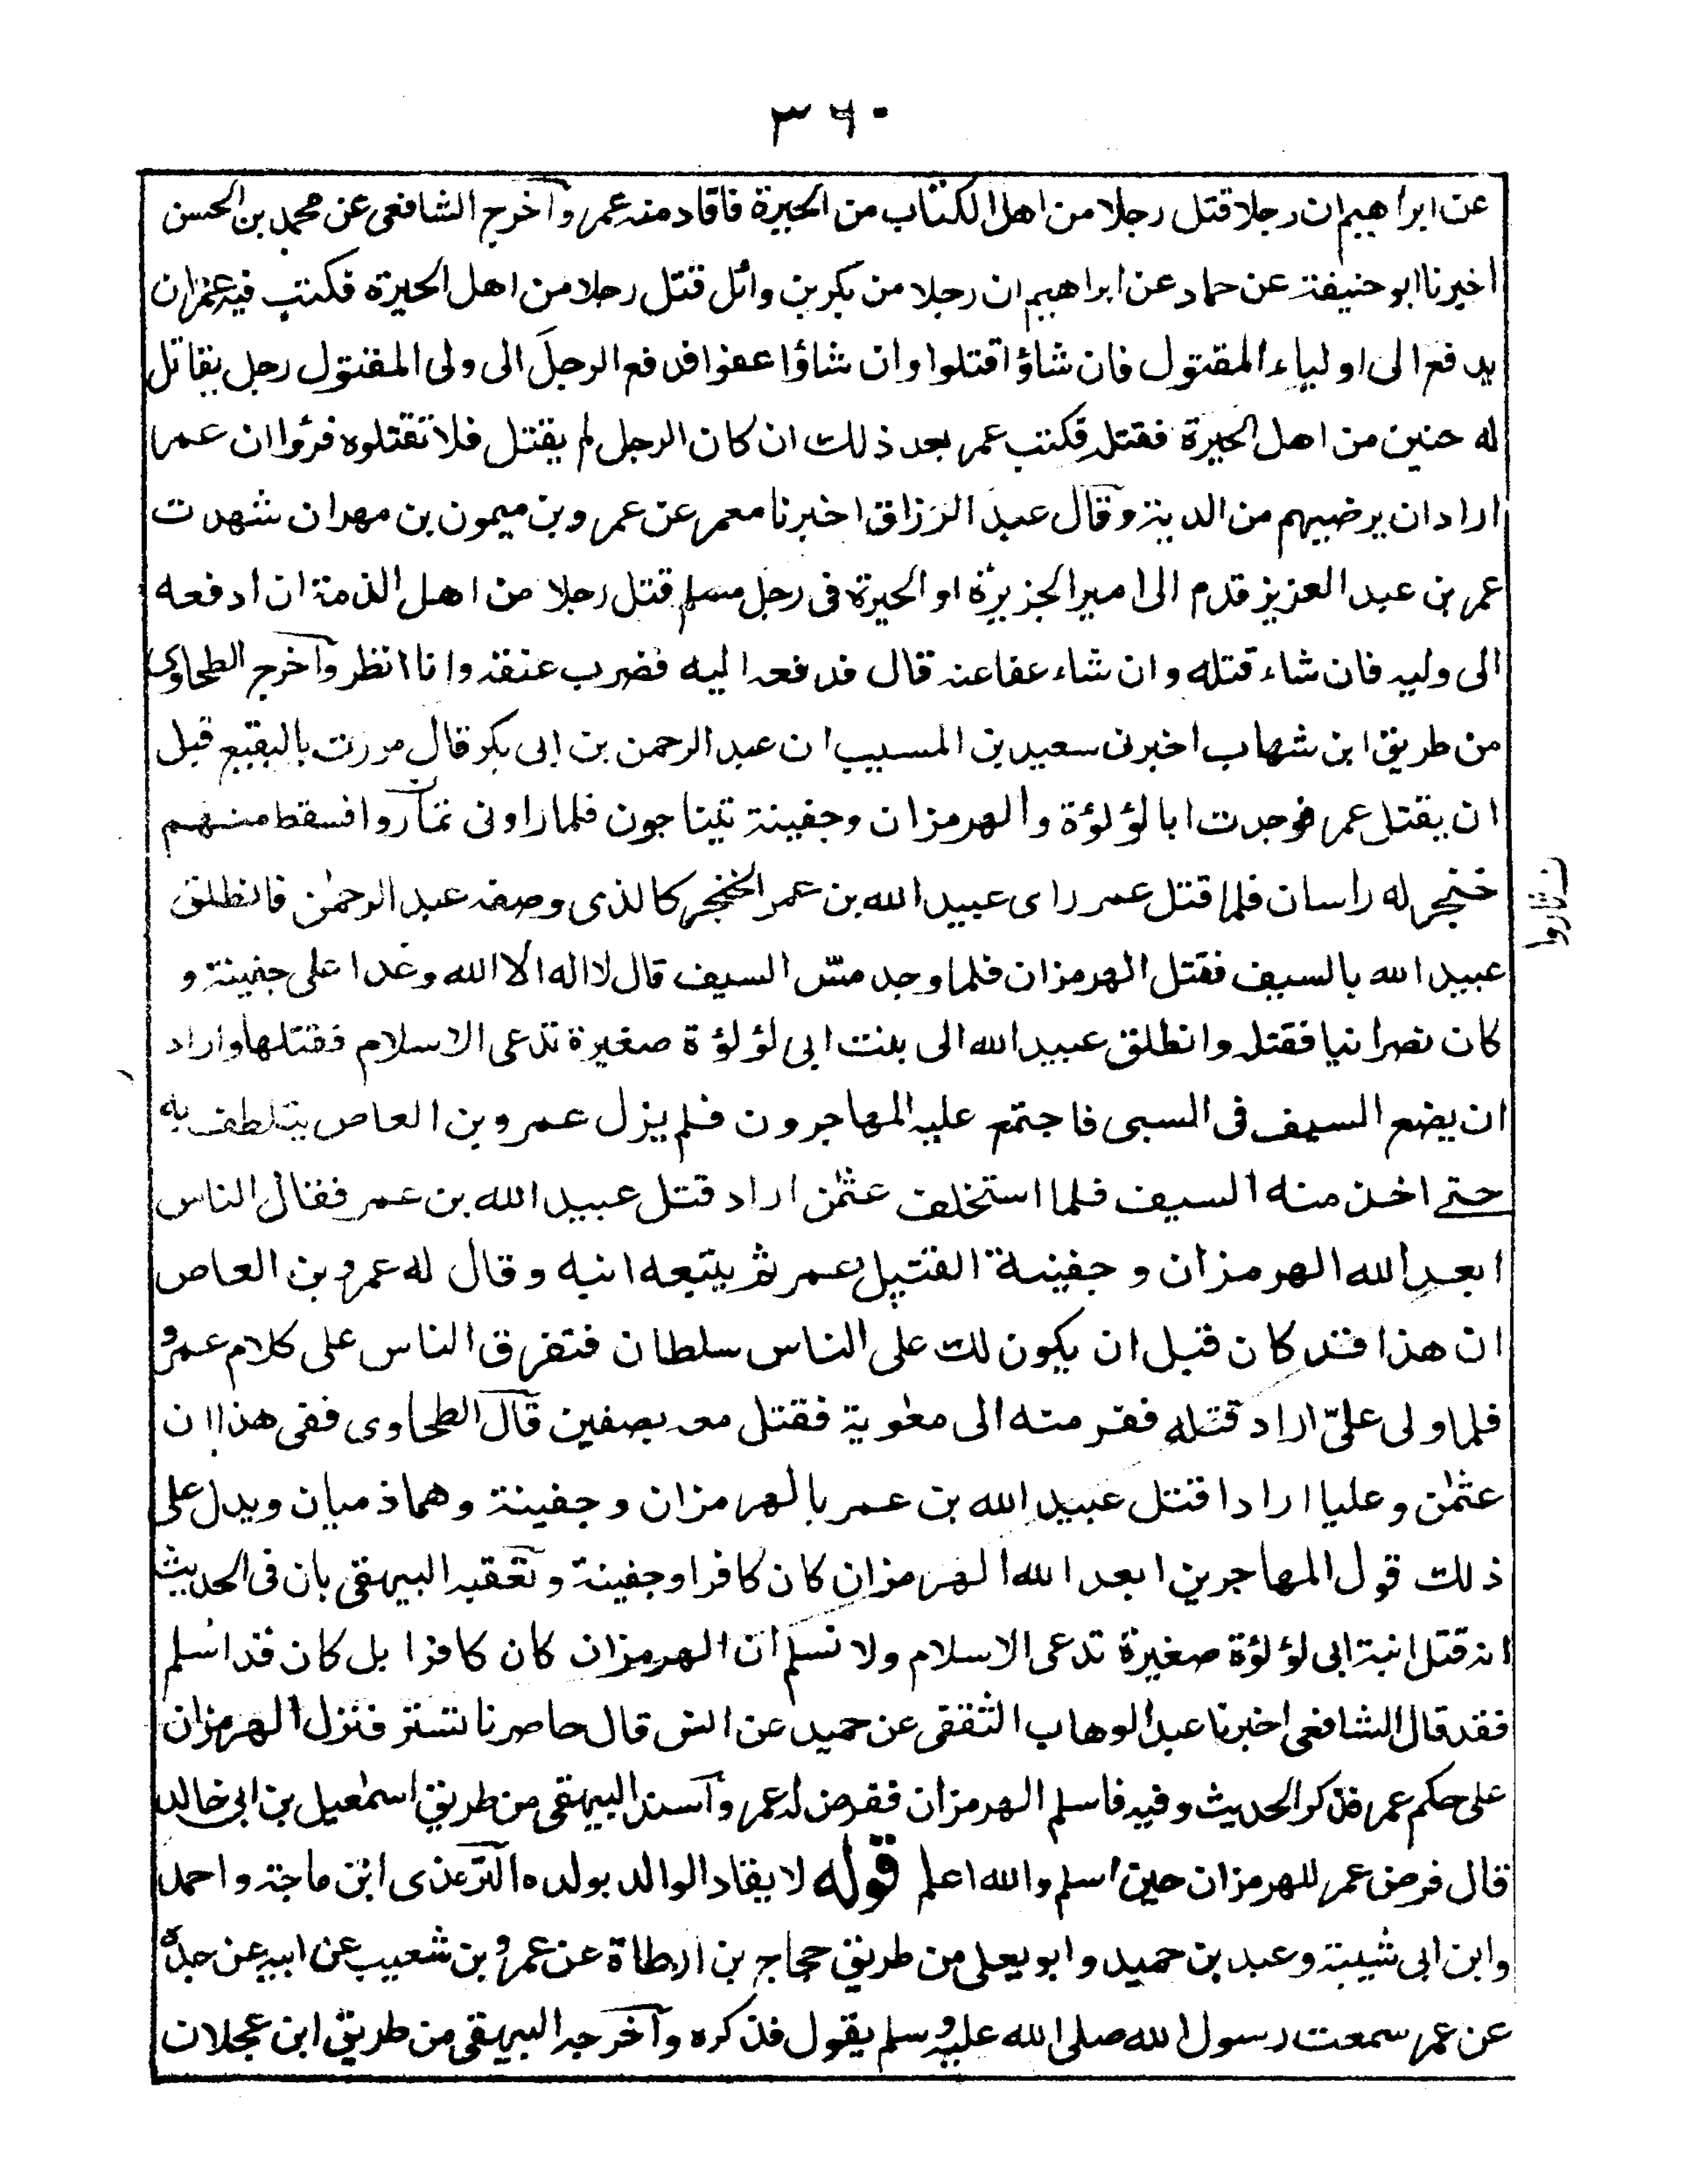 ٣٦٠
عن ابراهيم ان رجلا قتل رجلا من اهل الكتاب من الحيرة فاقاد منه عمر وآخرج الشافعى عن محمد بن الحسن
اخبرنا ابو حنيفة عن حماد عن ابراهيم ان رجلا من بكر بن وائل قتل رجلا من اهل الحيرة فكتب فيه عمر ان
يدفع الى اولياء المقتول فان شاؤا قتلوا وان شاؤا عفوا فدفع الرجل الى ولى المقتول رجل يقال
له حنين من اهل الحيرة فقتله فكتب عمر بعد ذلك ان كان الرجل لم يقتل فلا تقتلوه فرؤا ان عمر
اراد ان يرضيهم من الدية وقال عبد الرزاق اخبرنا معمر عن عمرو بن ميمون بن مهران شهدت
عمر بن عبد العزيز قدم الى امير الجزيرة او الحيرة فى رجل مسلم قتل رجلا من اهل الذمة ان ادفعه
الى وليه فان شاء قتله وان شاء عفا عنه قال فدفعه اليه فضرب عنقه وانا انظر وآخرج الطحاوى
من طريق ابن شهاب اخبرنى سعيد بن المسيب ان عبد الرحمن بن ابى بكر قال مررت بالبقيع قبل
ان يقتل عمر فوجدت ابا لؤلؤة والهرمزان وجفينة يتناجون فلما راونى ثاروا فسقط منهم
خنجر له راسان فلما قتل عمر راى عبيد الله بن عمر الخنجر كالذى وصفه عبد الرحمٰن فانطلق
عبيد الله بالسيف فقتل الهرمزان فلما وجد مسّ السيف قال لا اله الا الله وغدا على جفينة و
كان نصرانيا فقتله وانطلق عبيد الله الى بنت ابى لؤلؤة صغيرة تدعى الاسلام فقتلها واراد
ان يضع السيف فى السبى فاجتمع عليه المهاجرون فلم يزل عمرو بن العاص يتلطف به
حتے اخذ منه السيف فلما استخلف عثمٰن اراد قتل عبيد الله بن عمر فقال الناس
ابعد الله الهرمزان و جفينة القتيل عمر ثم يتبعه ابنه وقال له عمرو بن العاص
ان هذا قد كان قبل ان يكون لك على الناس سلطان فتفرق الناس على كلام عمرو
فلما ولى علىّ اراد قتله ففر منه الى معٰوية فقتل معه بصفين قآل الطحاوى ففى هذا ان
عثمٰن وعليا ارادا قتل عبيد الله بن عمر بالهرمزان وجفينة وهما ذميان ويدل على
ذلك قول المهاجرين ابعد الله الهرمزان كان كافرا وجفينة وتعقبه البيهقى بان فى الحديث
انه قتل ابنة ابى لؤلؤة صغيرة تدعى الاسلام ولا نسلم ان الهرمزان كان كافرا بل كان قد اسلم
فقد قال الشافعى اخبرنا عبد الوهاب الثقفى عن حميد عن انس قال حاصرنا تستر فنزل الهرمزان
على حكم عمر فذكر الحديث وفيه فاسلم الهرمزان ففرض له عمر وآسند البيهقى من طريق اسمٰعيل بن ابى خالد
قال فرض عمر للهرمزان حين اسلم والله اعلم قوله لا يقاد الوالد بولده الترمذى ابن ماجة واحمد
وابن ابى شيبة وعبد بن حميد وابو يعلى من طريق حجاج بن ارطاة عن عمرو بن شعيب عن ابيه عن جده
عن عمر سمعت رسول الله صلى الله عليه وسلم يقول فذكره وآخرجه البيهقى من طريق ابن عجلان